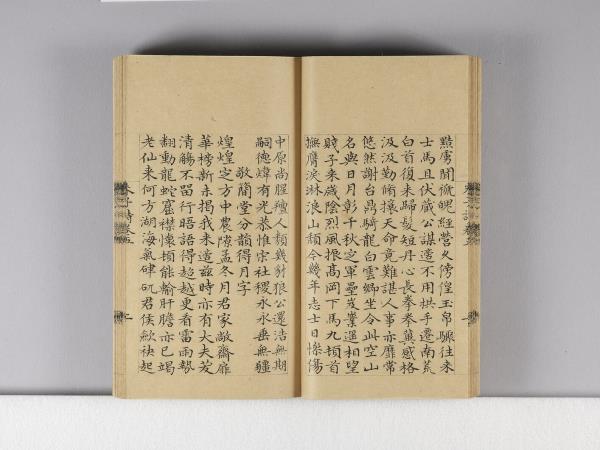 點虜聞徹魄經營久傍徨玉帛驟往来
士馬且伏蔵公謀適不用拱手遷南荒
白首復来歸髮短丹心長拳拳冀感格
汲汲勤脩攘天命竟難諶人事亦靡常
悠然謝台鼎騎龍白雲鄉坐令此空山
名與日月彰千秋定軍壘岌嶪遥相望
賤子来歲陰烈風振高岡下馬九頓首
撫膺淚淋浪山頹今幾年志士日慘傷
中原尚腥羶人類幾豺狼公還浩無期
嗣德煒有光恭惟宋社稷永永垂無疆
敬簡堂分韻得月字
煌煌定方中農隙孟冬月君家敞齋扉
華榜新未揭我来適兹時亦有大夫茇
清觴不留行晤語得超越更看雷雨勢
翻動龍蛇窟襟懷頓能輸肝膽亦已竭
老仙来何方湖海氣硉矹君侯欻袂起